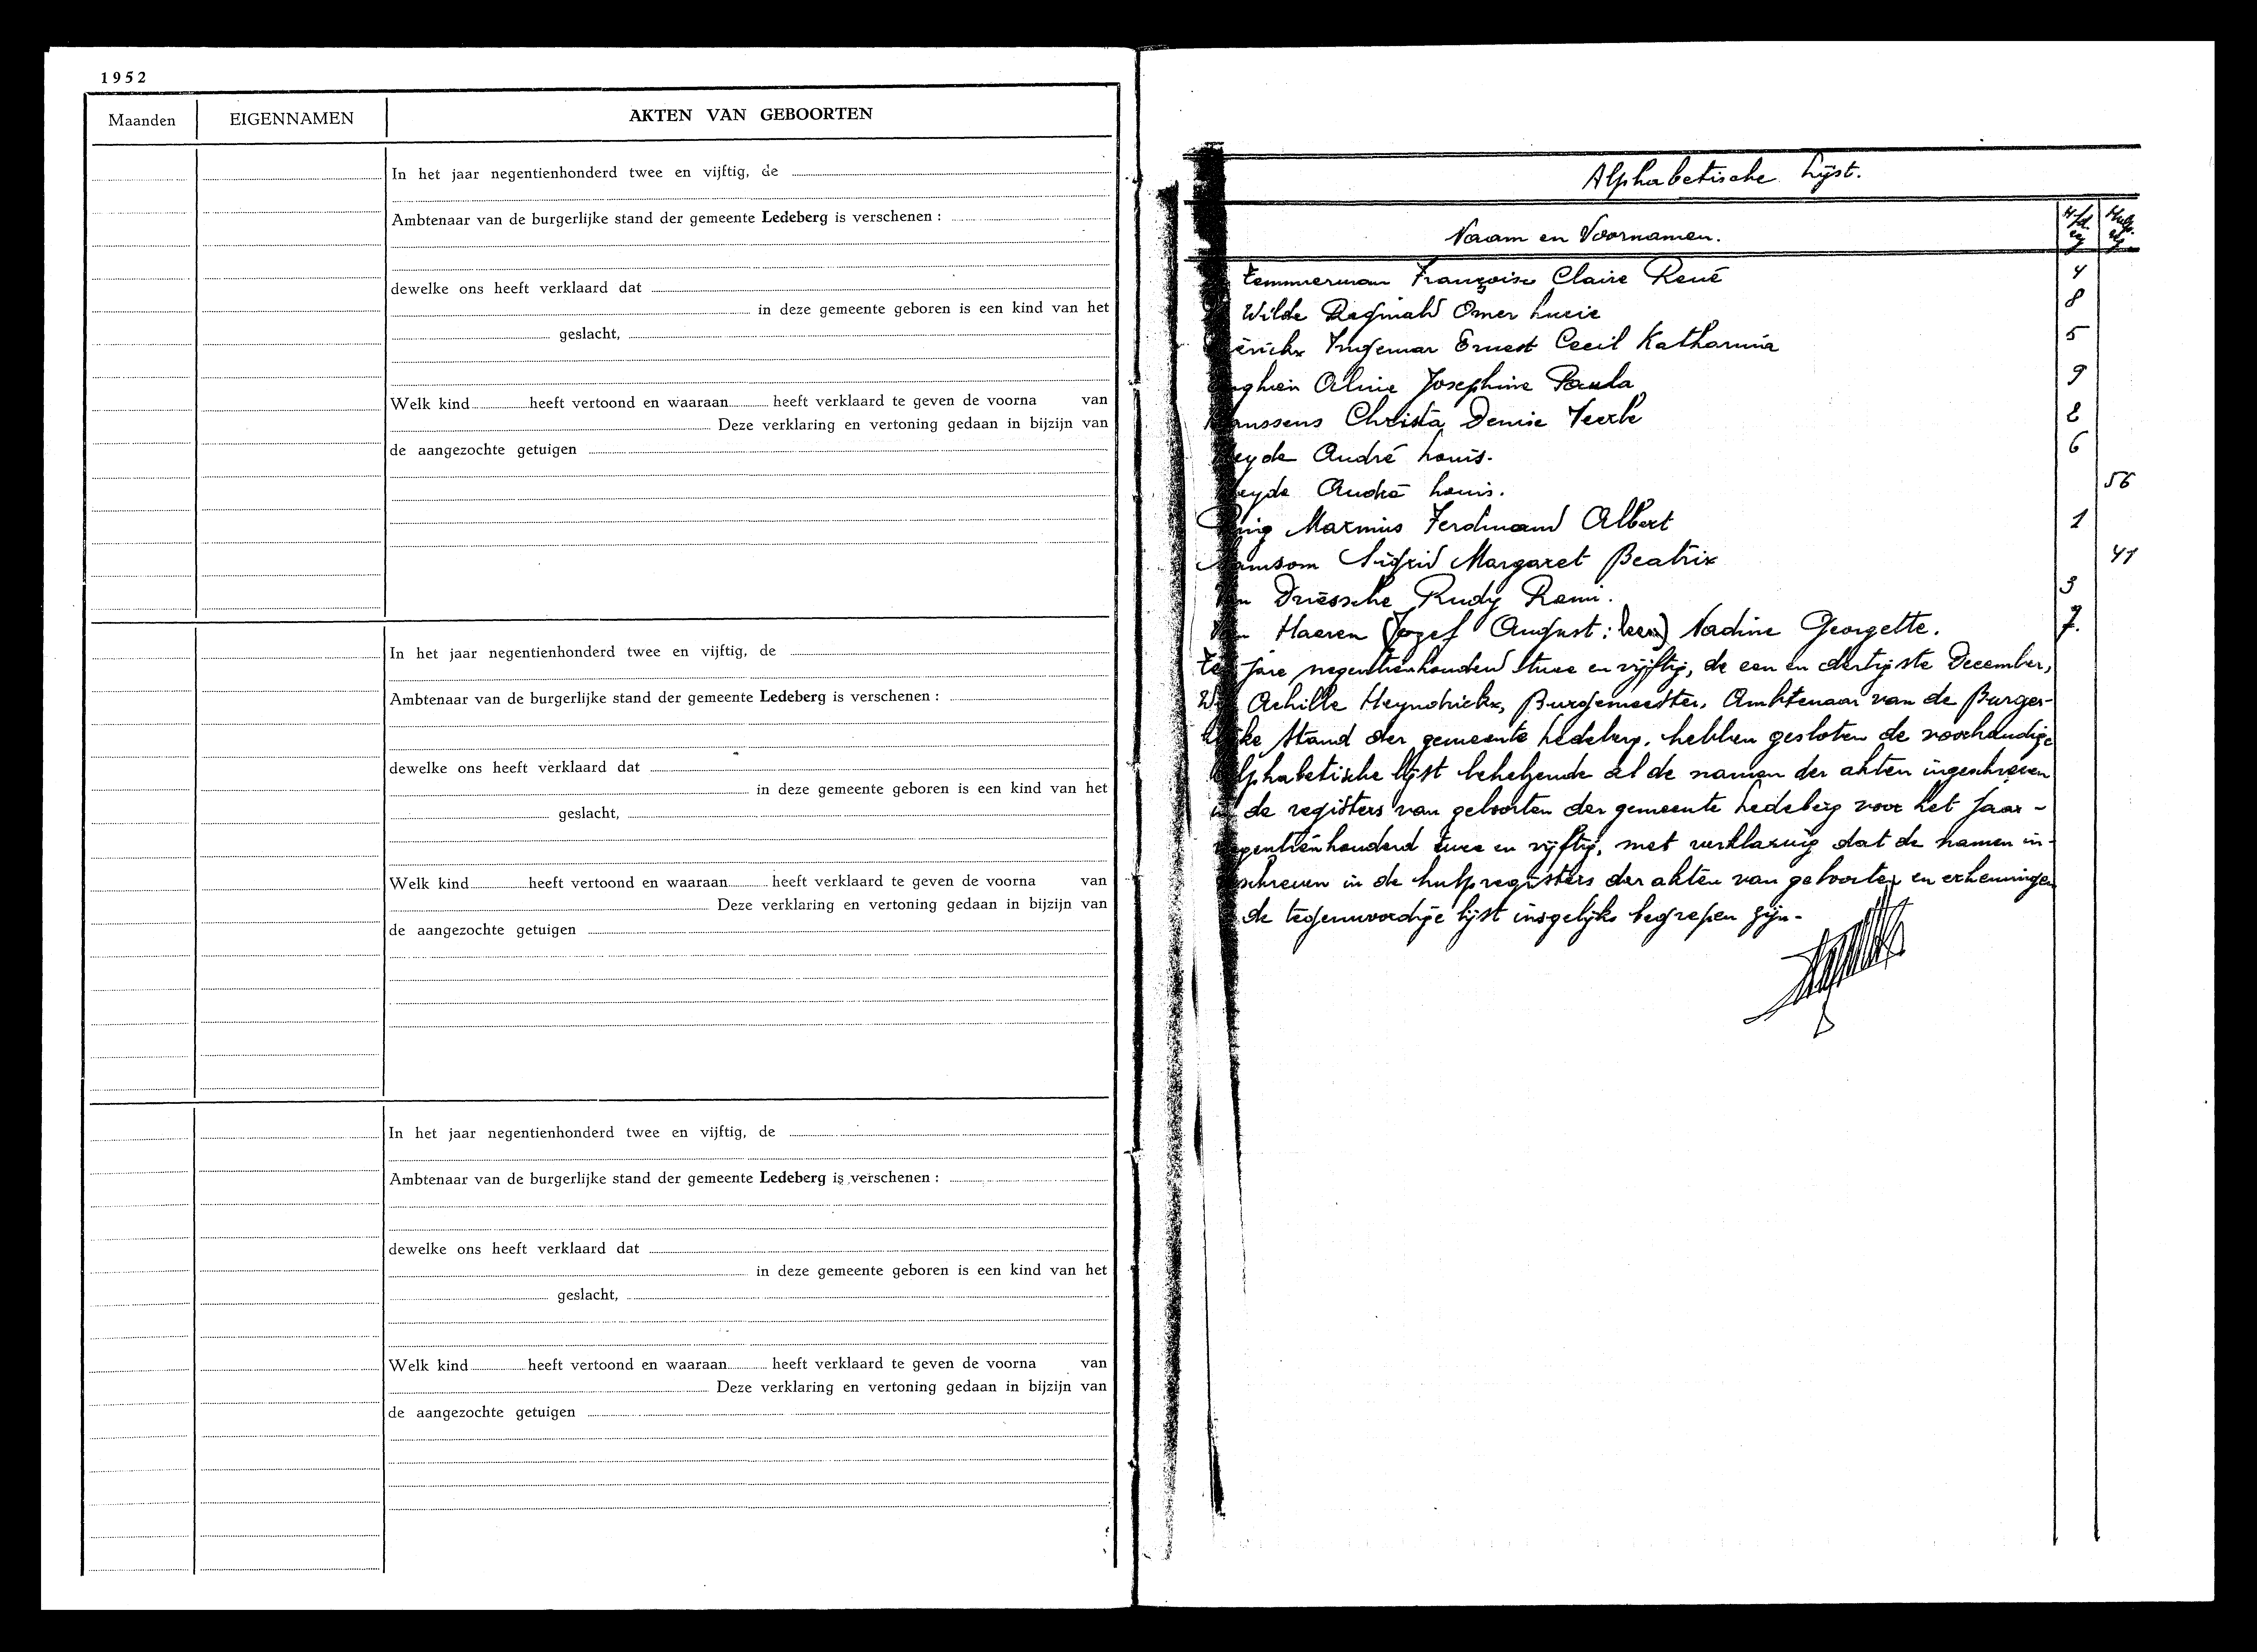 1952
Maanden EIGENNAMEN AKTEN VAN GEBOORTEN
In het jaar negentienhonderd twee en vijftig, de
Ambtenaar van de burgerlijke stand der gemeente Ledeberg is verschenen :
dewelke ons heeft verklaard dat
in deze gemeente geboren is een kind van het
geslacht,
Welk kind heeft vertoond en waaraan heeft verklaard te geven de voorna van
Deze verklaring en vertoning gedaan in bijzijn van
de aangezochte getuigen
In het jaar negentienhonderd twee en vijftig, de
Ambtenaar van de burgerlijke stand der gemeente Ledeberg is verschenen :
dewelke ons heeft verklaard dat
in deze gemeente geboren is een kind van het
geslacht,
Welk kind heeft vertoond en waaraan heeft verklaard te geven de voorna van
Deze verklaring en vertoning gedaan in bijzijn van
de aangezochte getuigen
In het jaar negentienhonderd twee en vijftig, de
Ambtenaar van de burgerlijke stand der gemeente Ledeberg is verschenen :
dewelke ons heeft verklaard dat
in deze gemeente geboren is een kind van het
geslacht,
Welk kind heeft vertoond en waaraan heeft verklaard te geven de voorna van
Deze verklaring en vertoning gedaan in bijzijn van
de aangezochte getuigen
Alphabetische Lijst.
Naam en Voornamen.
Temmerman Françoise Claire René 4
Wilde Reginald Omer Lucie 8
Ingemar Ernest Cecil Katharina 5
Aline Josephine Paula 9
Christa Denise Veerle 2
André Louis. 6
André Louis. 56
Ferdinand Albert 1
Sigrid Margaret Beatrix 41
Driessche Rudy Remi. 3
Haeren (Jozef August: leen) Nadine Georgette. 7.
jare negentienhonderd twee en vijftig, de een en dertigste December,
Achille Heyndrickx, Burgemeester, Ambtenaar van de Burger-
Stand der gemeente Ledeberg, hebben gesloten de voorhandige
Alphabetische lijst behelzende al de namen der akten ingeschreven
de registers van geboorten der gemeente Ledeberg voor het jaar -
negentienhonderd twee en vijftig, met verklaring dat de namen in-
schreven in de hulpregisters der akten van geboorten en erkenningen
de tegenwoordige lijst insgelijks begrepen zijn-